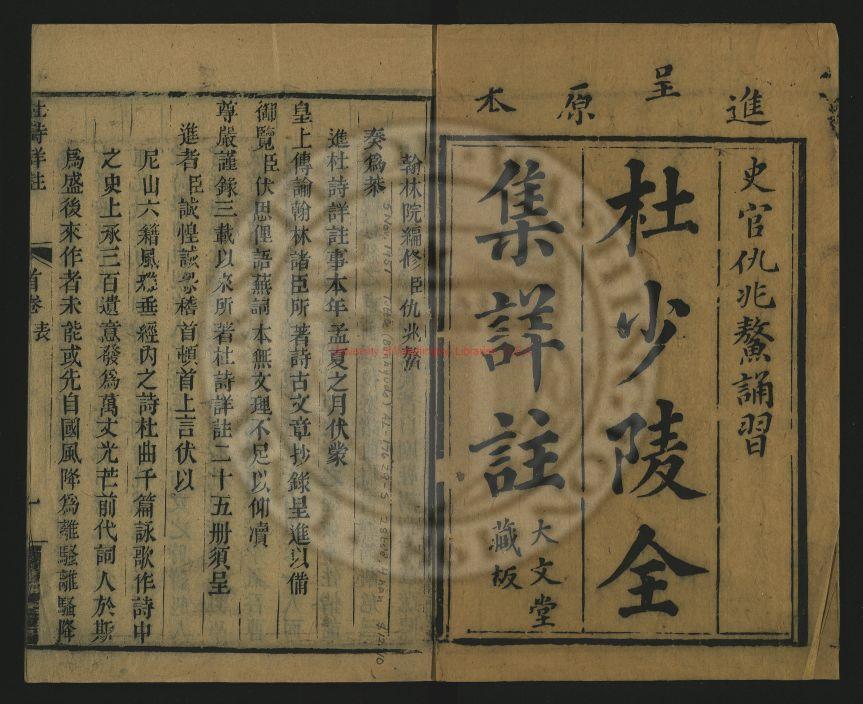 進呈原本
史官仇兆鰲誦習
杜少陵全
集詳註
大文堂
藏板
翰林院編修臣仇兆鰲
奏爲恭
進杜詩詳註事本年孟夏之月伏蒙
皇上傳諭翰林諸臣所著詩古文章抄錄呈進以備
御覽臣伏思俚語蕪詞本無文理不足以仰瀆
尊嚴謹錄三載以來所著杜詩詳註二十五册須呈
進者臣誠惶誠恐稽首頓首上言伏以
尼山六籍風雅垂經內之詩杜曲千篇詠歌作詩中
之史上承三百遺意發爲萬丈光芒前代詞人於斯
爲盛後來作者未能或先自國風降爲離騷離騷降
杜詩詳註
首卷表
一